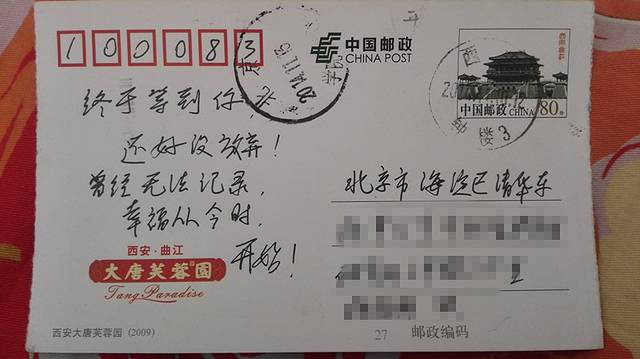 100083
中国邮政
CHINA POST
西
中国邮政 CHINA 80分
楼3
终于等到你,
还好没放弃!
曾经无法记录,
幸福从今时,
开始!
北京市海淀区清华东
西安·曲江
大唐芙蓉园
Tang Paradise
西安大唐芙蓉园 (2009)
27
邮政编码